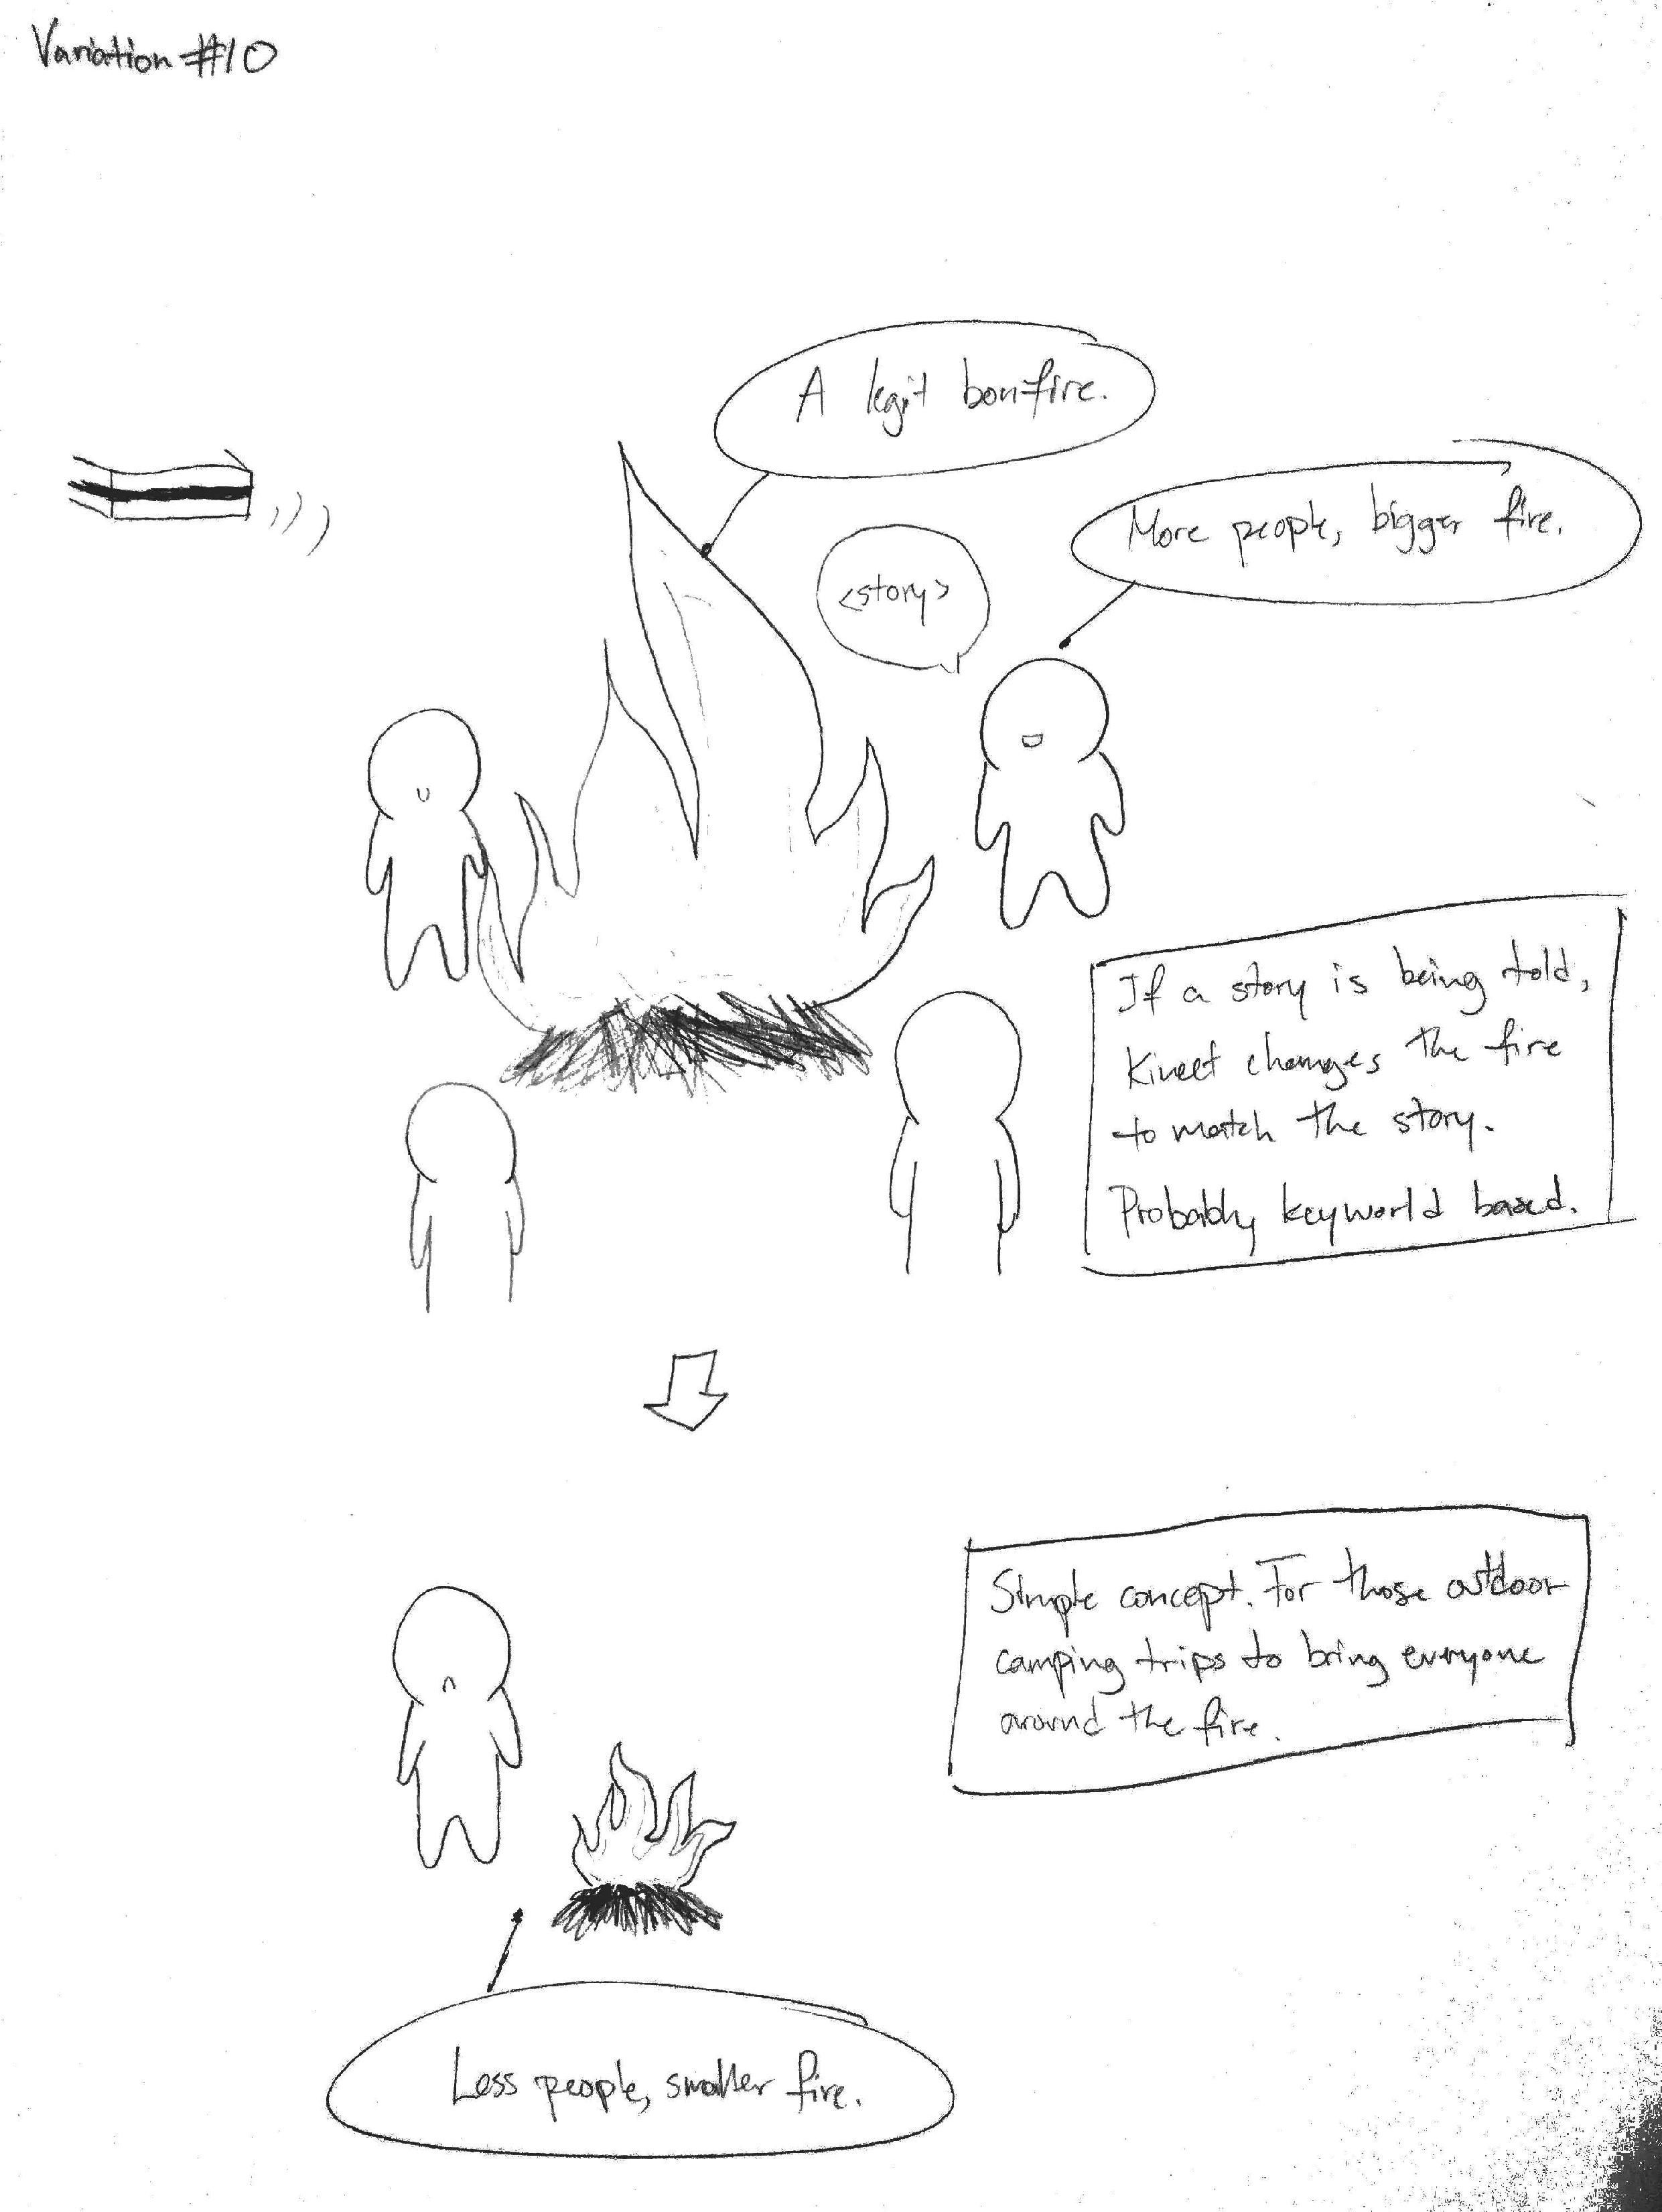 Variation #10
A legit bonfire.
More people, bigger fire.
<story>
If a story is being told,
Kinect changes the fire
to match the story.
Probably keyworld based.
Simple concept. For those outdoor
camping trips to bring everyone
around the fire.
Less people, smaller fire.